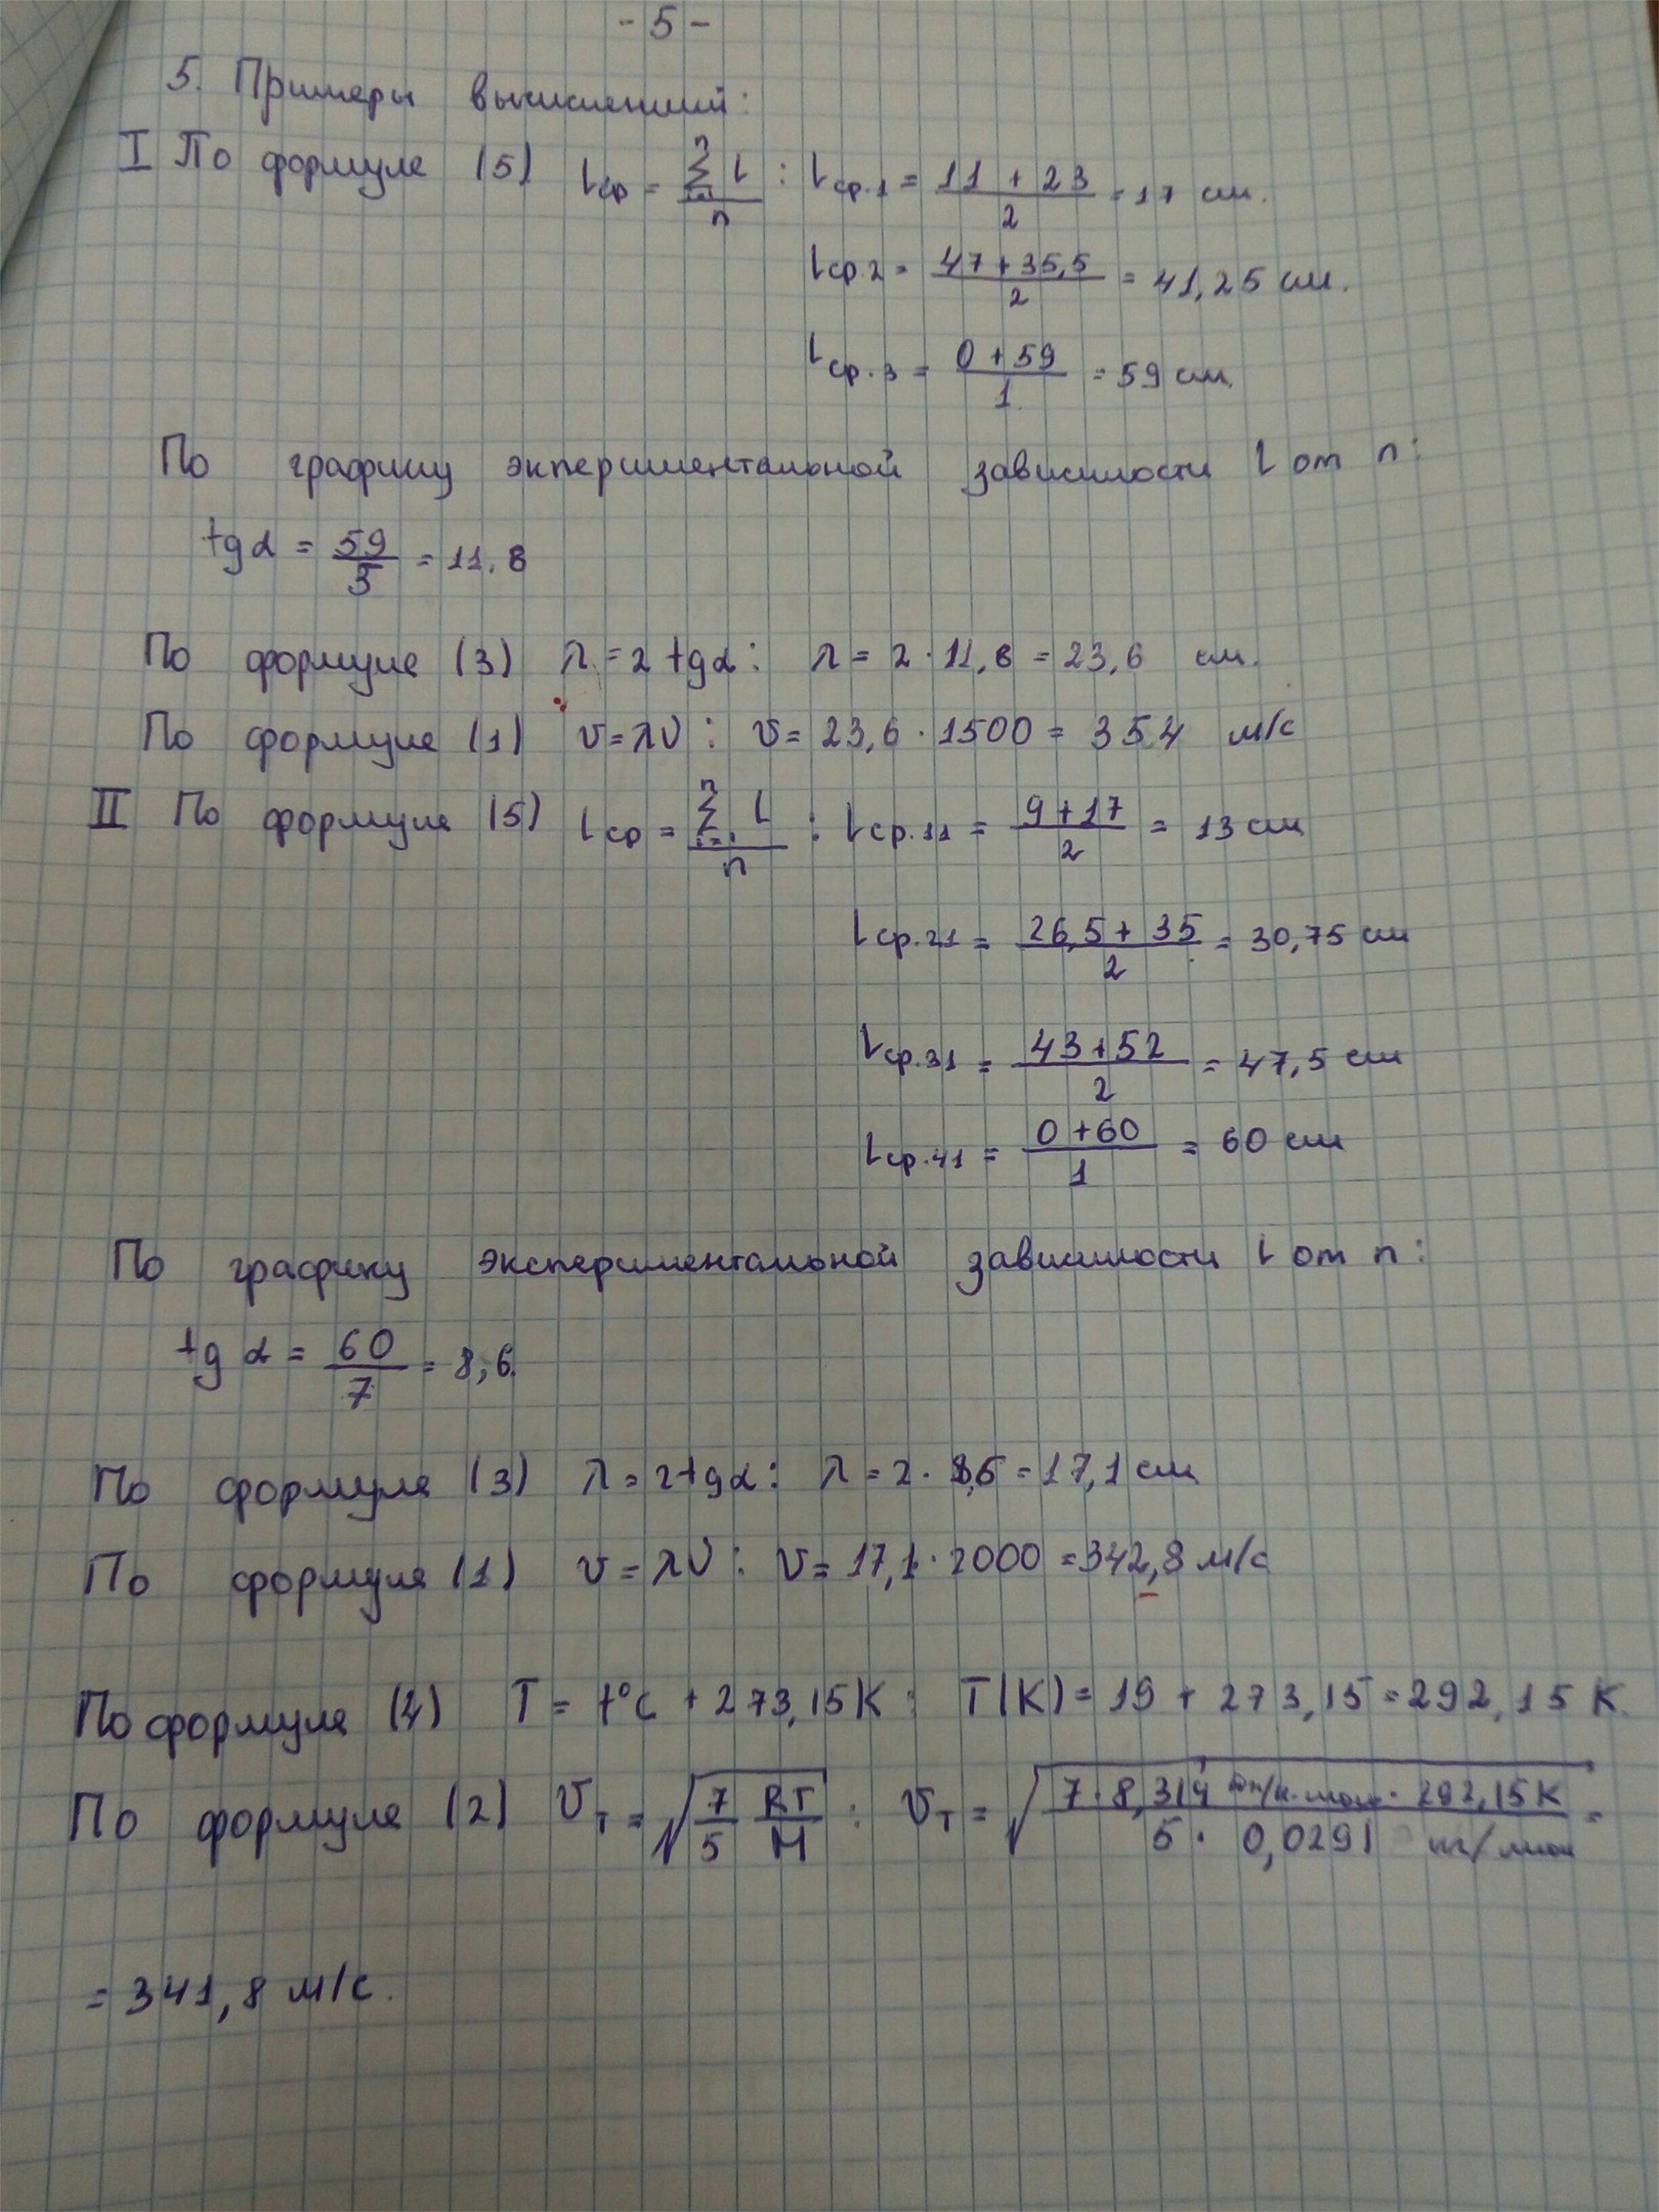 - 5 -
5. Примеры вычислений:
I По формуле (5) lср = Σⁿᵢ₌₁ l / n : lср.1 = (11 + 23)/2 = 17 см.
lср.2 = (47 + 35,5)/2 = 41,25 см.
lср.3 = (0 + 59)/1 = 59 см.
По графику экпериментальной зависимости l от n:
tgα = 59/5 = 11,8
По формуле (3) λ = 2 tgα : λ = 2 · 11,8 = 23,6 см.
По формуле (1) v = λν : v = 23,6 · 1500 = 354 м/с
II По формуле (5) lср = Σⁿᵢ₌₁ l / n : lср.11 = (9 + 17)/2 = 13 см
lср.21 = (26,5 + 35)/2 = 30,75 см
lср.31 = (43 + 52)/2 = 47,5 см
lср.41 = (0 + 60)/1 = 60 см
По графику экспериментальной зависимости l от n:
tg α = 60/7 = 8,6.
По формуле (3) λ = 2tgα : λ = 2 · 8,6 = 17,1 см
По формуле (1) v = λν : v = 17,1 · 2000 = 342,8 м/с
По формуле (4) T = t°C + 273,15 K : T(K) = 19 + 273,15 = 292,15 K.
По формуле (2) vT = √(7/5 RT/M) : vT = √(7 · 8,314 · 292,15 K / 5 · 0,0291) =
= 341,8 м/с.